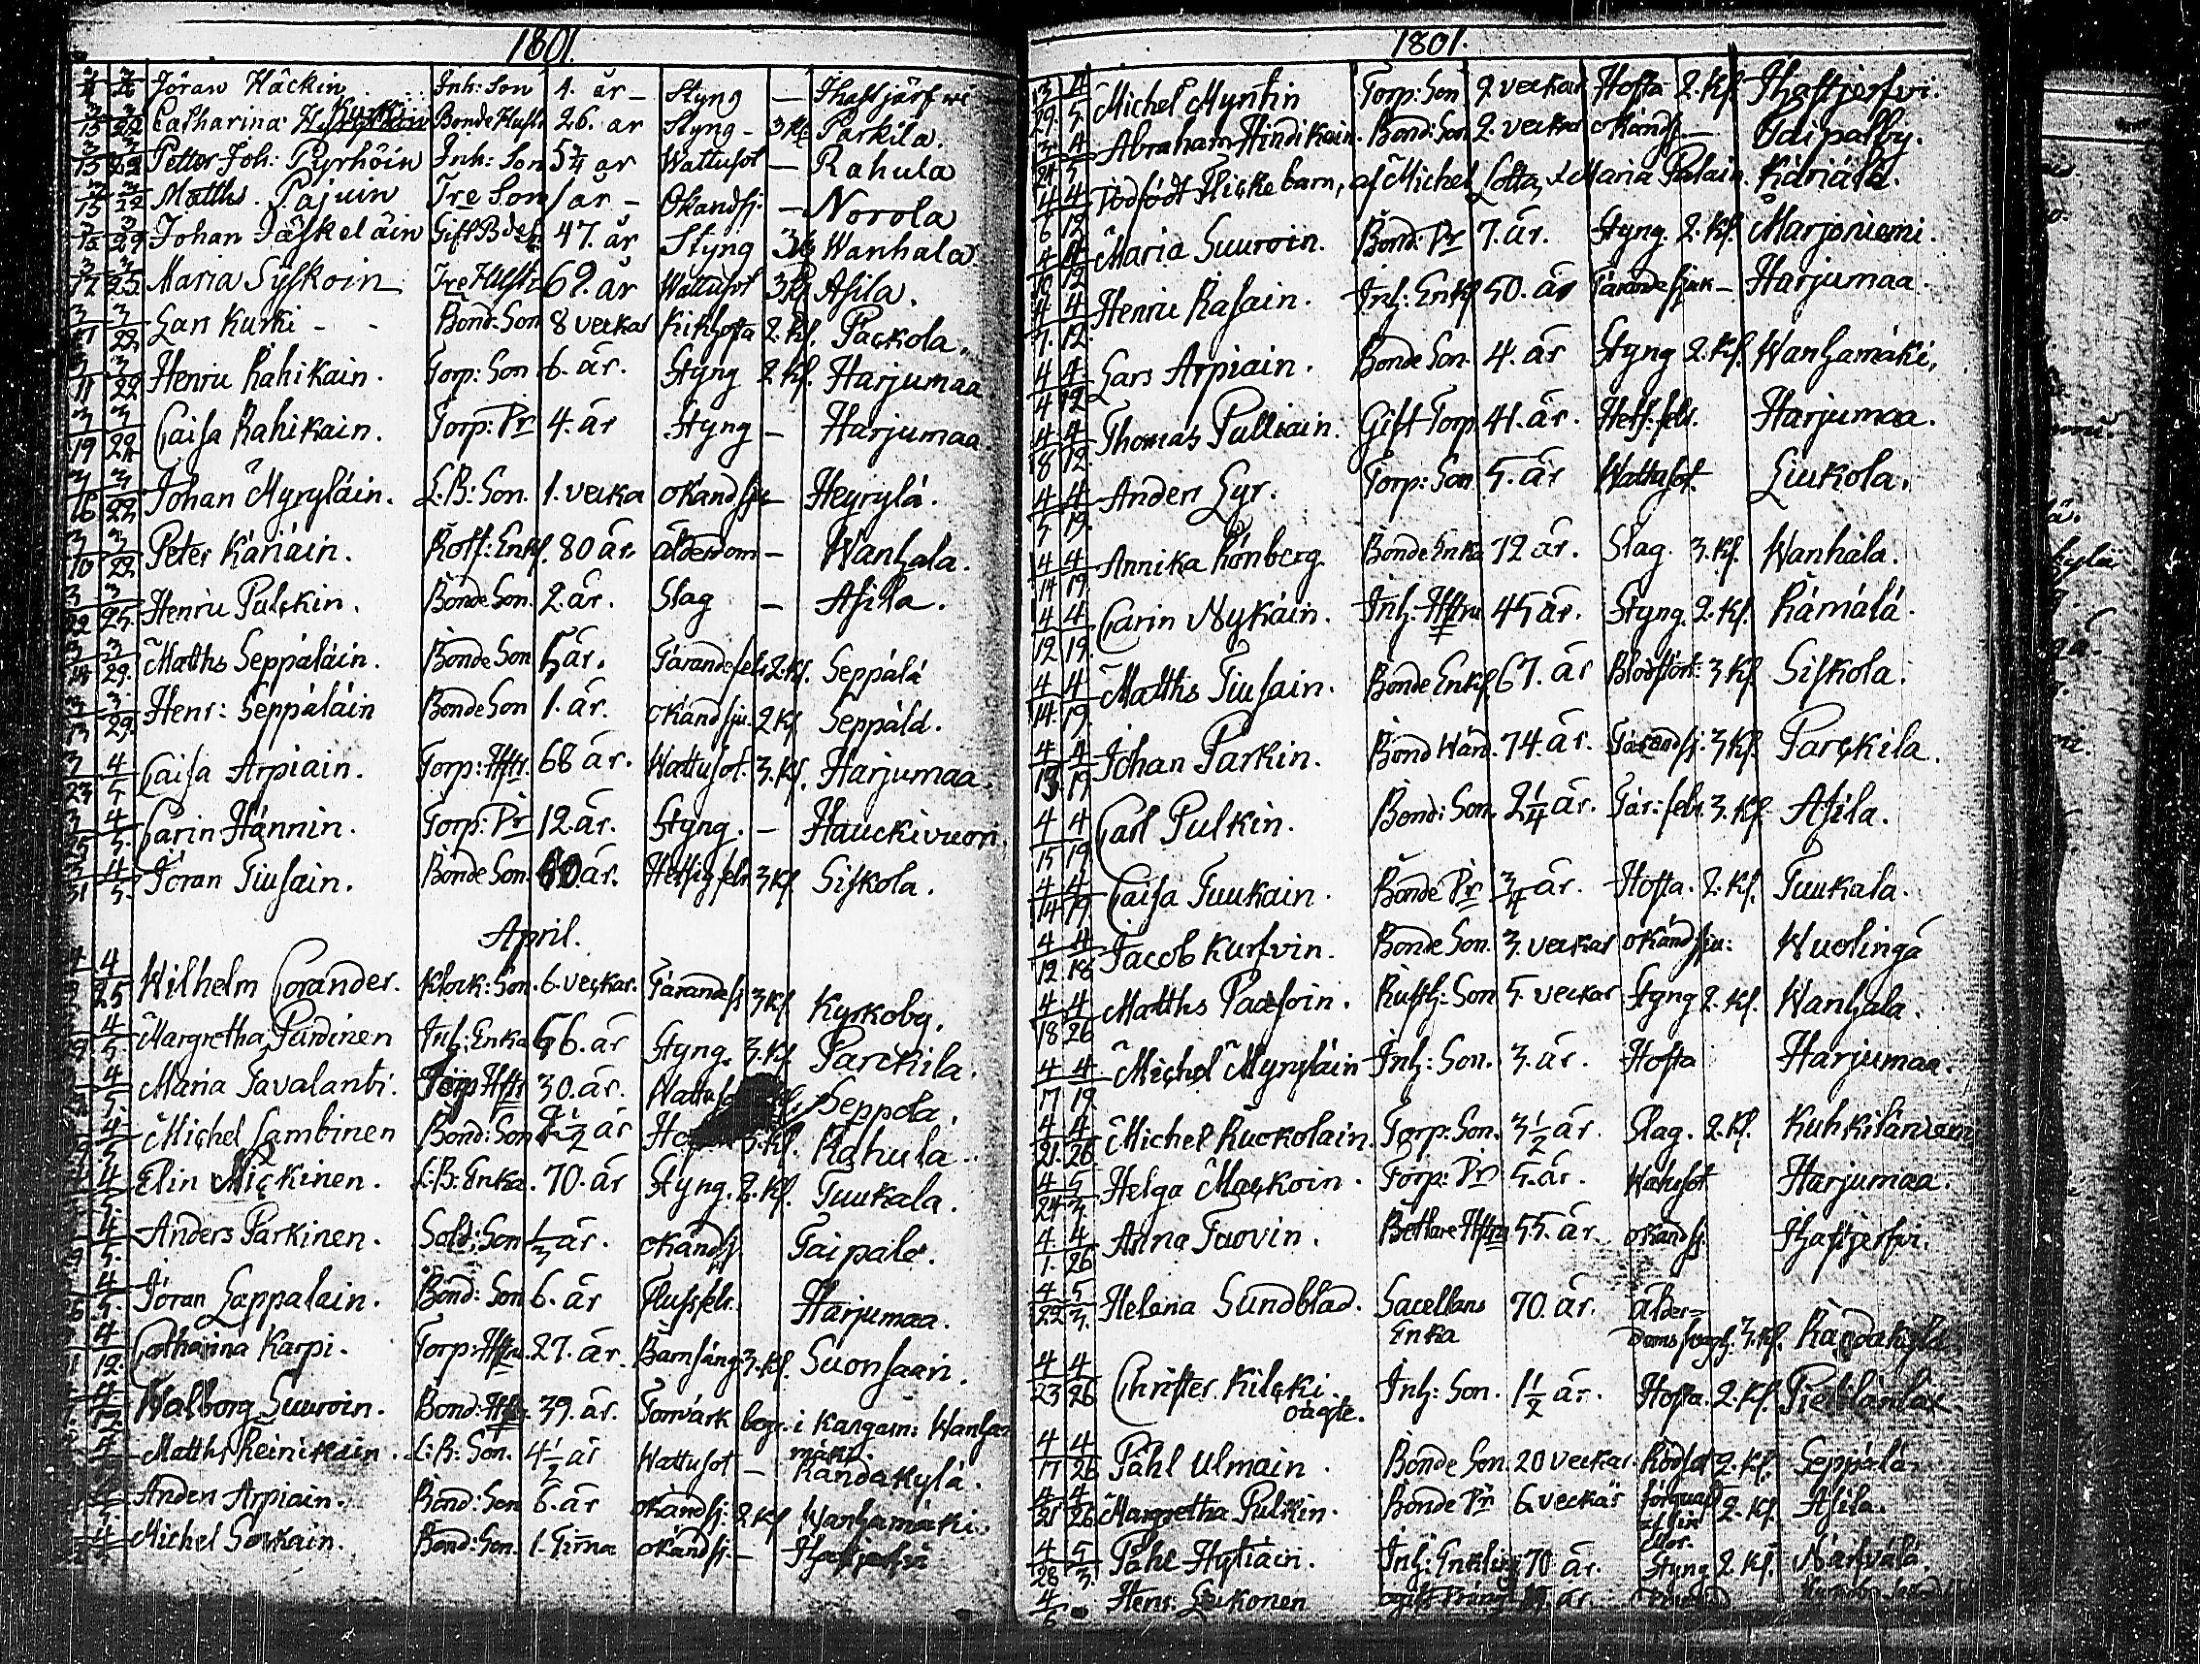 1801.
Jöran Häckin Inh: Son 1. år - Styng - Ihastjärfwi
3/15 3/22 Catharina Kurki Bonde Hustr 26. år Styng - 3 Kl. Parkila.
3/15 3/22 Petter Joh: Pyrhöin Inh: Son 5 1/4 år Wattusot - Rahula
3/15 3/22 Matths. Pajuin Tre Son 1 år - Okandsj: - Norola
3/22 Johan Jäskeläin Gift Bde 47. år Styng 3 Kl Wanhala.
3/17 3/25 Maria Syskoin Tre Hustr 62. år Wattusot 3 Kl Asila.
3/22 Lars Kurki - - Bond: Son 8 veckor Kikhosta 2. Kl. Packola.
3/11 3/22 Henric Rahikain. Torp: Son 6. år. Styng 2 Kl. Harjumaa
3/19 3/22 Caisa Rahikain. Torp: Pr 4. år Styng - Harjumaa.
3/16 3/22 Johan Myryläin. L:B: Son. 1. vecka okandsju - Heyrylä.
3/10 3/22 Peter Käriäin. Rott: Enkl. 80 år. ålderdom - Wanhala.
3/22 3/25 Henric Pulckin. Bonde Son. 2. år. Slag - Asila.
3/14 3/29. Matths Seppäläin. Bonde Son 5 år. Tärandefeb 2. Kl. Seppälä
3/13 3/29. Henr: Seppäläin Bonde Son 1. år. okandsju. 2 Kl Seppälä.
3/23 4/5 Caisa Arpiain. Torp: Hstr. 68 år. Wattusot. 3. Kl. Harjumaa.
3/25 4/5. Carin Hännin. Torp: Pr 12. år. Styng. - Hauckivuori.
3/31 4/5. Jöran Tiusain. Bonde Son. 60. år. Hetsig febr 3 Kl. Siskola.
April.
4/25 Wilhelm Corander. Klock: Son. 6. veckar. Tärandesj 3 Kl Kyrkoby.
4/5. Margretha Purdinen Inh: Enka 56. år Styng. 3. Kl Parckila.
4/5. Maria Tavalanti. Torp Hstr 30. år. Wattuso Seppola.
4/5 Michel Lambinen Bond: Son 1/2 år 3. Kl. Rahula.
4/5. Elin Mickinen. L:B: Enka. 70. år Styng. 2. Kl. Tuukala.
4/5. Anders Parkinen. Sold: Son 1/3 år. okändsj. Taipale.
4/5. Jöran Lappalain. Bond: Son 6. år Flussfebr. Harjumaa.
4/12. Catharina Karpi. Torp: Hstru. 27. år. Barnsäng 3. Kl. Suonsaari.
4/12 Walborg Suuroin. Bond: Hstr. 39. år. Torvärk begr. i Kangasn: Wanha=
mäki.
4 Matths Reinikain. L:B: Son. 4 1/2 år Wattusot - Randakylä.
4/5. Anders Arpiain. Bond: Son 6. år okändsj: 2 Kl Wanhamäki.
4 Michel Sorkain. Bond: Son. 1. Tima okändsj. - Ihastjerfvi
1801.
3/29. 4/5. Michel Myntin Torp: Son 2. veckar Hosta 2. Kl. Ihastjerfvi.
4/5 Abraham Hindikain. Bond: Son 2. veckar okändsj. - Taipalby.
4/6 4/12 Dödfödt Flickebarn, af Michel Lotta, & Maria Palain. Käriälä.
4/10 4/12 Maria Suuroin. Bond: Pr 7. år. Styng. 2. Kl. Marjoniemi.
4/7. 4/12. Henric Rasain. Inh: Enkl 50. år Tärandesjuk - Harjumaa.
4/4 4/12 Lars Arpiain. Bonde Son. 4. år Styng 2. Kl. Wanhamäki.
4/8 4/12. Thomas Pulliain. Gift Torp. 41. år. Hets: febr. Harjumaa.
4/5 4/19. Anders Lyr. Torp: Son 5. år Wattusot. Liukola.
4/14 4/19. Annika Rönberg Bonde Enka 72 år. Slag. 3. Kl. Wanhala.
4/12 4/19. Carin Nykäin. Inh: Hstru 45 år. Styng. 2. Kl. Rämälä.
4/14. 4/19. Matths Tiusain. Bonde Enkl 67. år Blodstört. 3 Kl. Siskola.
4/13. 4/19 Johan Parkin. Bond Wärd. 74. år. Tärandsj. 3 Kl. Parckila.
4/15 4/19. Carl Pulkin. Bond: Son. 2 1/4 år. Tär: febr. 3. Kl. Asila.
4/14 4/19 Caisa Tuukain. Bonde Pr 3/4 år. Hosta. 2. Kl. Tuukala.
4/12. 4/18 Jacob Kurfvin. Bonde Son. 3. veckar okändsju: Wuolinga
4/18 4/26 Matths Paasoin. Rusth: Son 5. veckar Styng 2. Kl. Wanhala.
4/17 4/19 Michel Myryläin Inh: Son. 3. år. Hosta Harjumaa.
4/21. 4/26 Michel Ruckolain. Torp: Son. 3 1/2 år. Slag. 2. Kl. Kuhkiläniemi
4/24 5/3. Helga Mackoin. Torp: Pr 5. år. Watusot Harjumaa.
4/1. 4/26 Anna Tuovin. Bettlare Hstru 55. år. okändsj. Ihastjerfvi.
4/22 5/3. Helena Sundblad. Sacellans 70. år. ålder=
Enka doms svagh: 3. Kl. Randakylä
4/23 4/26 Christer Kilcki. Inh: Son. 1 1/2 år. Hosta. 2. Kl. Pietilänlax
oägte.
4/17 4/26 Påhl Ulmain. Bonde Son. 20 veckar. Rödsot 2. Kl. Seppälä.
4/25 4/26 Margretha Pulkin. Bonde Pr 6. veckar förquafd 2. Kl. Asila.
af sin
4/28 5/3. Påhl Hytiäin. Inh: Enkling 70. år. Styng 2. Kl. Närfvälä.
4/6 Henr: Liukonen år.